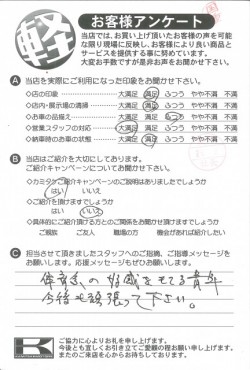 軽
お客様アンケート
当店では、お買い上げ頂いたお客様の声を可能
な限り現場に反映し、お客様により良い商品と
サービスを提供する事に努めています。
大変お手数ですが是非お声をお聞かせ下さい。
A 当店を実際にご利用になった印象をお聞かせ下さい。
◇店の印象 大満足 満足 ふつう やや不満 不満
◇店内・展示場の清掃 大満足 満足 ふつう やや不満 不満
◇お車の品揃え 大満足 満足 ふつう やや不満 不満
◇営業スタッフの対応 大満足 満足 ふつう やや不満 不満
◇納車時のお車の状態 大満足 満足 ふつう やや不満 不満
B 当店はご紹介を大切にしております。
ご紹介キャンペーンについてお聞かせ下さい。
◇カミタケご紹介キャンペーンのご説明はありましたでしょうか
はい いいえ
◇ご紹介を頂けますでしょうか
はい いいえ
◇具体的にご紹介頂ける方とのご関係をお聞かせ頂けますでしょうか
ご親族 ご友人 職場の方 機会があれば紹介したい
C 担当させて頂きましたスタッフへのご指摘、ご指導メッセージを
お願いします。応援メッセージもぜひお願いします。
の好感をもてる青年
今後も頑張って下さい。
K
ご協力に心よりお礼を申し上げます。
今後とも宜しくお引き立てご愛顧の程お願い申し上げます。
またのご来店を心からお待ちしております。